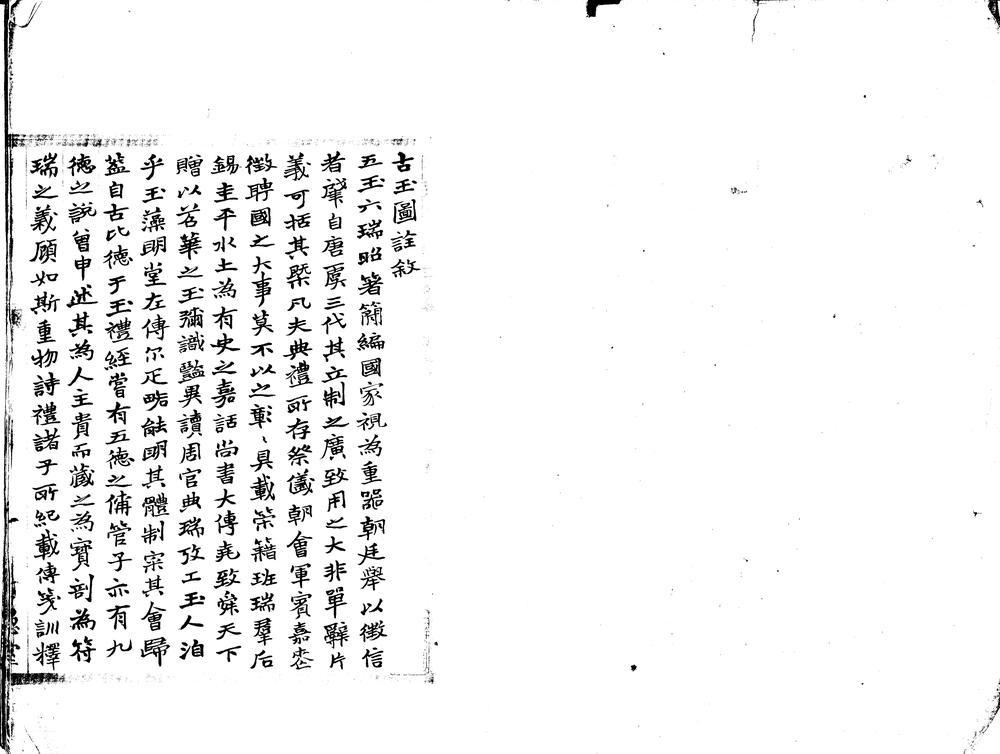 古玉圖詮敘
五玉六瑞昭箸簡編國家視為重器朝廷舉以徵信
者肇自唐虞三代其立制之廣致用之大非單辭片
義可括其槩凡夫典禮所存祭儀朝會軍賓嘉
徵聘國之大事莫不以之彰〻具載策籍班瑞羣后
錫圭平水土為有史之嘉話尚書大傳堯致舜天下
贈以苕華之玉彌識豔異讀周官典瑞攷工玉人洎
乎玉藻明堂左傳尔疋畧能明其體制宷其會歸
葢自古比德于玉禮經嘗有五德之備管子亦有九
德之說曾申述其為人主貴而藏之為寶剖為符
瑞之義顧如斯重物詩禮諸子所紀載傳箋訓釋